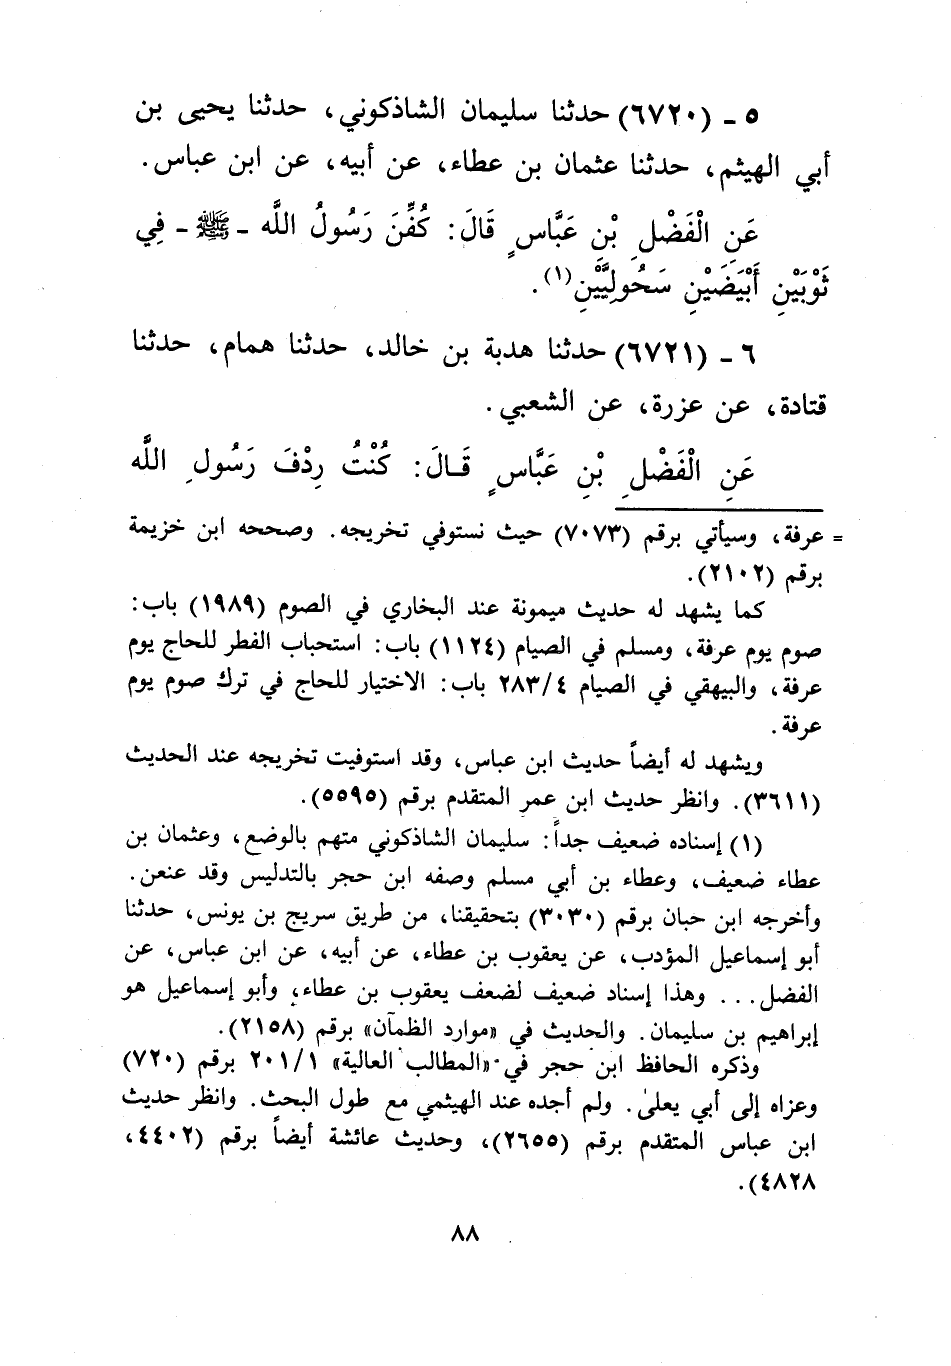 ٥ - (٦٧٢٠) حدثنا سليمان الشاذكوني، حدثنا يحيى بن
أبي الهيثم، حدثنا عثمان بن عطاء، عن أبيه، عن ابن عباس.
عَنِ الْفَضْلِ بْنِ عَبَّاسٍ قَالَ: كُفِّنَ رَسُولُ اللَّه - ﷺ - فِي
ثَوْبَيْنِ أَبْيَضَيْنِ سَحُولِيَّيْنِ(١).
٦ - (٦٧٢١) حدثنا هدبة بن خالد، حدثنا همام، حدثنا
قتادة، عن عزرة، عن الشعبي.
عَنِ الْفَضْلِ بْنِ عَبَّاسٍ قَالَ: كُنْتُ رِدْفَ رَسُولِ اللَّه
= عرفة، وسيأتي برقم (٧٠٧٣) حيث نستوفي تخريجه. وصححه ابن خزيمة
برقم (٢١٠٢).
كما يشهد له حديث ميمونة عند البخاري في الصوم (١٩٨٩) باب:
صوم يوم عرفة، ومسلم في الصيام (١١٢٤) باب: استحباب الفطر للحاج يوم
عرفة، والبيهقي في الصيام ٢٨٣/٤ باب: الاختيار للحاج في ترك صوم يوم
عرفة.
ويشهد له أيضاً حديث ابن عباس، وقد استوفيت تخريجه عند الحديث
(٣٦١١). وانظر حديث ابن عمر المتقدم برقم (٥٥٩٥).
(١) إسناده ضعيف جداً: سليمان الشاذكوني متهم بالوضع، وعثمان بن
عطاء ضعيف، وعطاء بن أبي مسلم وصفه ابن حجر بالتدليس وقد عنعن.
وأخرجه ابن حبان برقم (٣٠٣٠) بتحقيقنا، من طريق سريج بن يونس، حدثنا
أبو إسماعيل المؤدب، عن يعقوب بن عطاء، عن أبيه، عن ابن عباس، عن
الفضل... وهذا إسناد ضعيف لضعف يعقوب بن عطاء، وأبو إسماعيل هو
إبراهيم بن سليمان. والحديث في «موارد الظمآن» برقم (٢١٥٨).
وذكره الحافظ ابن حجر في «المطالب العالية» ٢٠١/١ برقم (٧٢٠)
وعزاه إلى أبي يعلى. ولم أجده عند الهيثمي مع طول البحث. وانظر حديث
ابن عباس المتقدم برقم (٢٦٥٥)، وحديث عائشة أيضاً برقم (٤٤٠٢،
٤٨٢٨).
٨٨